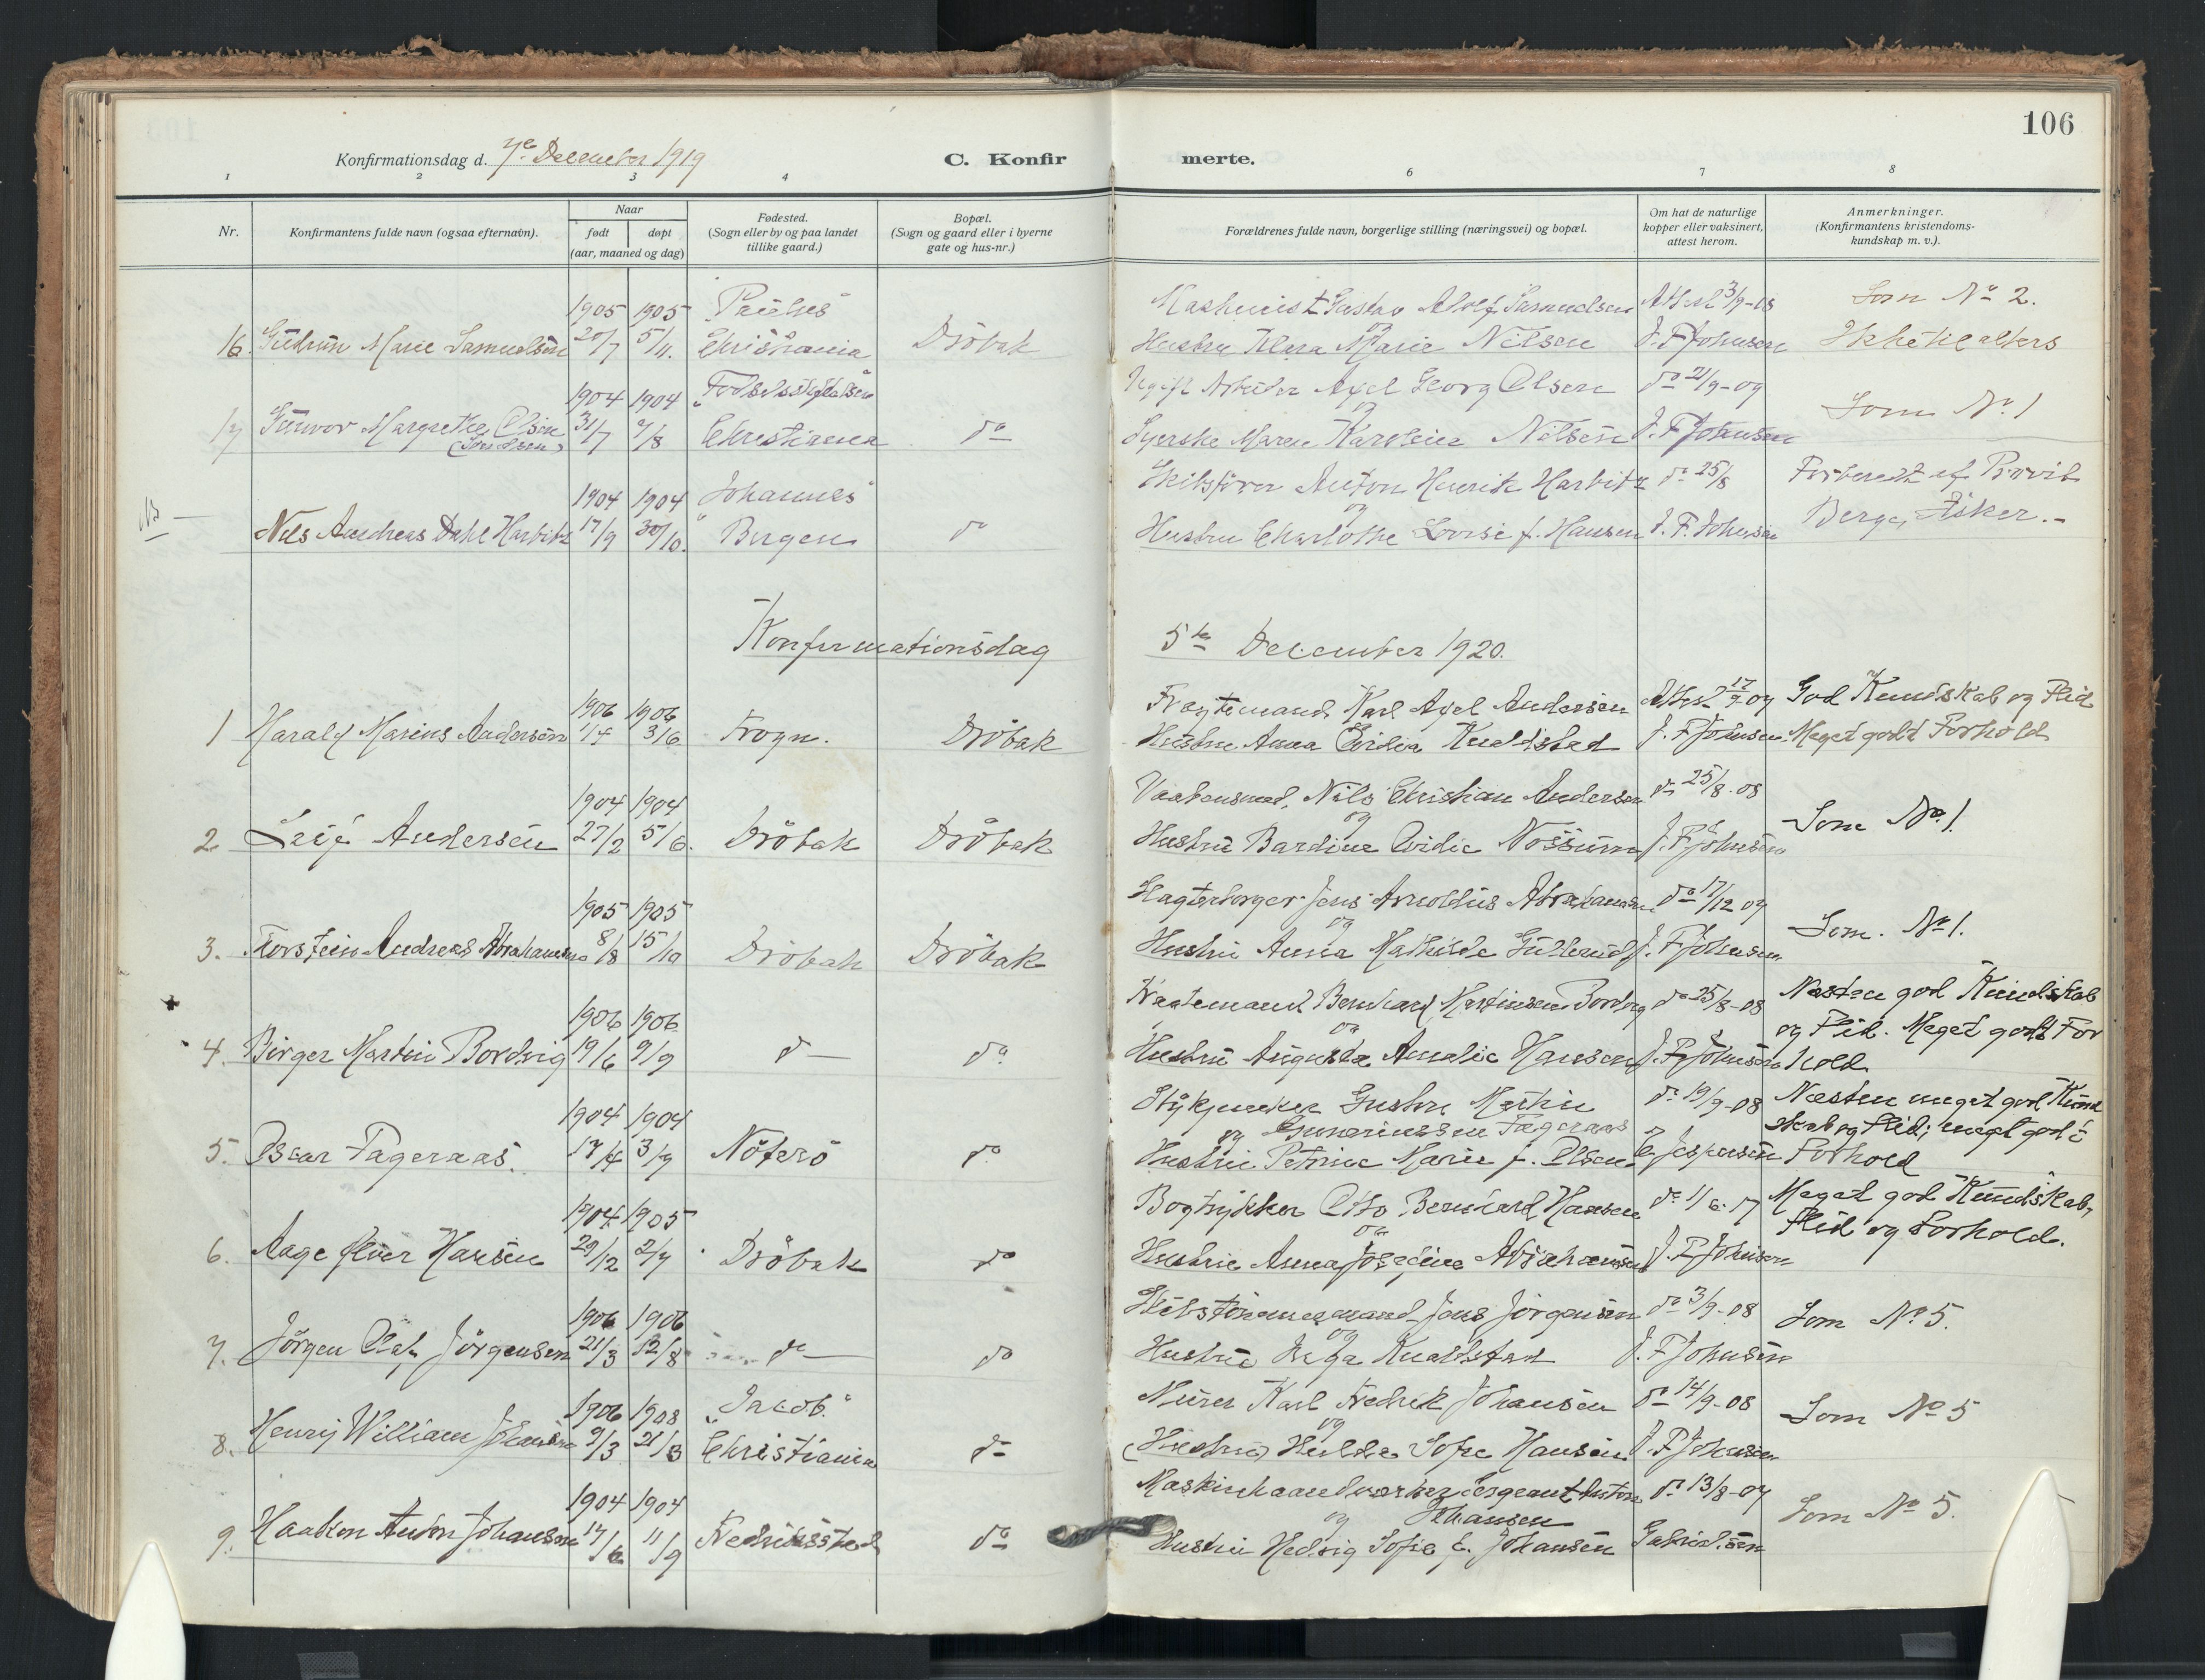 106
Konfirmationsdag d. 7de December 1919
C. Konfirmerte.
1 2 3 4 6 7 8
Nr.
Konfirmantens fulde navn (ogsaa efternavn).
Naar
født døpt
(aar, maaned og dag)
Fødested.
(Sogn eller by og paa landet
tillike gaard.)
Bopæl.
(Sogn og gaard eller i byerne
gate og hus-nr.)
Forældrenes fulde navn, borgerlige stilling (næringsvei) og bopæl.
Om hat de naturlige
kopper eller vaksinert,
attest herom.
Anmerkninger.
(Konfirmantens kristendoms-
kundskap m. v.).
1905 1905 "Paulus" Maskinist Gustav Adolf Samuelsen Attest 3/9-08 Som No 2.
16. Gudrun Marie Samuelsen 20/7 5/11. Christiania Dröbak og Hustru Klara Marie Nilsen J. F Johnsen Ikke til alters
1904 1904 "Fødselsstiftelsen" Ugift Arbeider Axel Georg Olsen do 21/9-09
17 Gunvor Margrethe Olsen 31/7 /8 Christiania do og Syerske Maren Karoline Nilsen J. F Johnsen Som No 1
1904 1904 "Johannes" Skibsfører Anton Henrik Harbitz do 25/8 Forberedt af Provst
NB — Nils Andreas Dahl Harbitz 17/9 30/10. Bergen do og Hustru Charlothe Lovise f. Hansen J. F. Johnsen Berge, Asker.-
Konfirmationsdag 5te December 1920.
1906 1906 Karl Axel Andersen Attest 17/9 09 God Kundskab og Flid
1 Harald Marius Andersen 1/4 3/6 Frogn. Dröbak Hustru Anna Ovidia Knaldstad J. F Johnsen. Meget godt Forhold
1904 1904 Vaabensmed, Nils Christian Andersen do 25/8-08
2 Leif Andersen 27/2 5/6. Dröbak Dröbak og Hustru Bardine Ovidie Nossum J. F Johnsen Som No 1.
1905 1905 Slagterborger Jens Arnoldus Abrahamsen do 17/12 09
3. Torstein Andreas Abrahamsen 8/8 15/10 Dröbak Dröbak og Hustru Anna Mathilde Gulterud J. F Johnsen Som. No 1.
1906 1906 Bernhard Martinsen Bordvig do 25/8-08 Næsten god Kundskab
4. Birger Martin Bordvig 19/6 9/9 do — do og Hustru Augusta Amalie Hansen J. F Johnsen og Flid. Meget godt For
hold.
1904 1904 Stykjunker Gustav Martin do 19/9-08 Næsten meget god Kund
Gunerinssen Fageraas skab og Flid; meget godt
5. Oscar Fageraas. 17/4 3/7 Nöterö do og Hustru Petrine Marie f. Olsen C. Jespersen Forhold
1904 1905 Bogtrykker Otto Bernhard Hansen do 1/6.17 Meget god Kundskab,
6. Aage Iver Hansen 29/12 2/7 Dröbak do og Hustru Anna Josefine Abrahamsen J. F Johnsen Flid og Forhold.
1906 1906 Skibstømmermand Jens Jörgensen do 3/9-08 Som No 5.
7. Jörgen Olaf Jörgensen 21/3 12/8 do — do og Hustru Knaldstad J. F Johnsen
1906 1908 "Jacob" Murer Karl Fredrik Johansen do 14/9-08 Som No 5
8. Henry William Johansen 9/3 21/3 Christiania do og (Hustru) Hulda Sofie Hansen J. F Johnsen
1904 1904 Maskinhaandverker Sergeant Anton do 13/8-07
Johansen Som No 5.
9. Haakon Anton Johansen 17/6 11/9 Fredriksstad do og Hustru Hedvig Sofie f. Johansen Gabrielsen